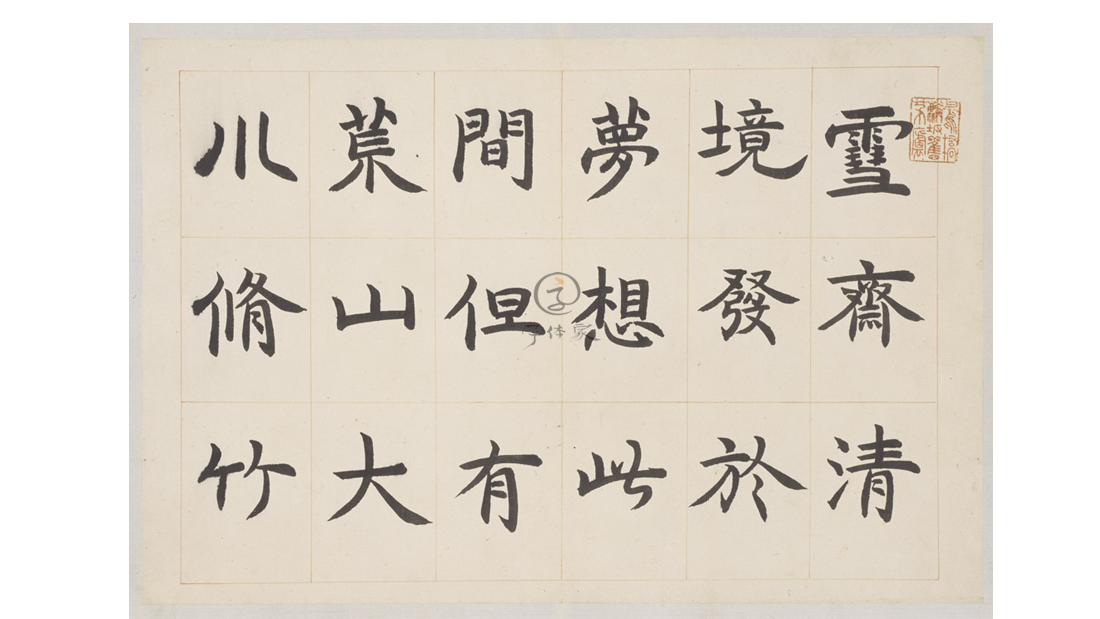 雪齋清
境發於
夢想此
間但有
荒山大
川脩竹
字体家